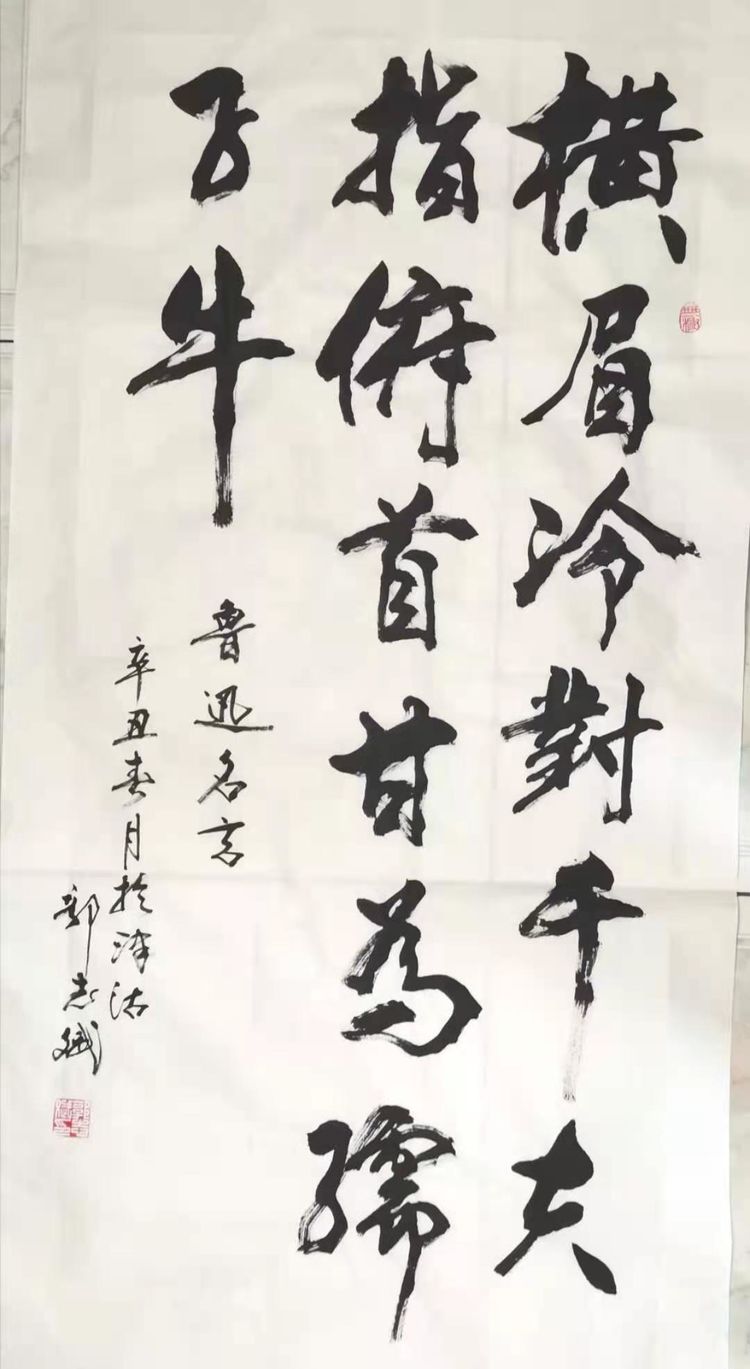 橫眉冷對千夫
指俯首甘為孺
子牛
魯迅名言
辛丑春月於津沽
郭志斌